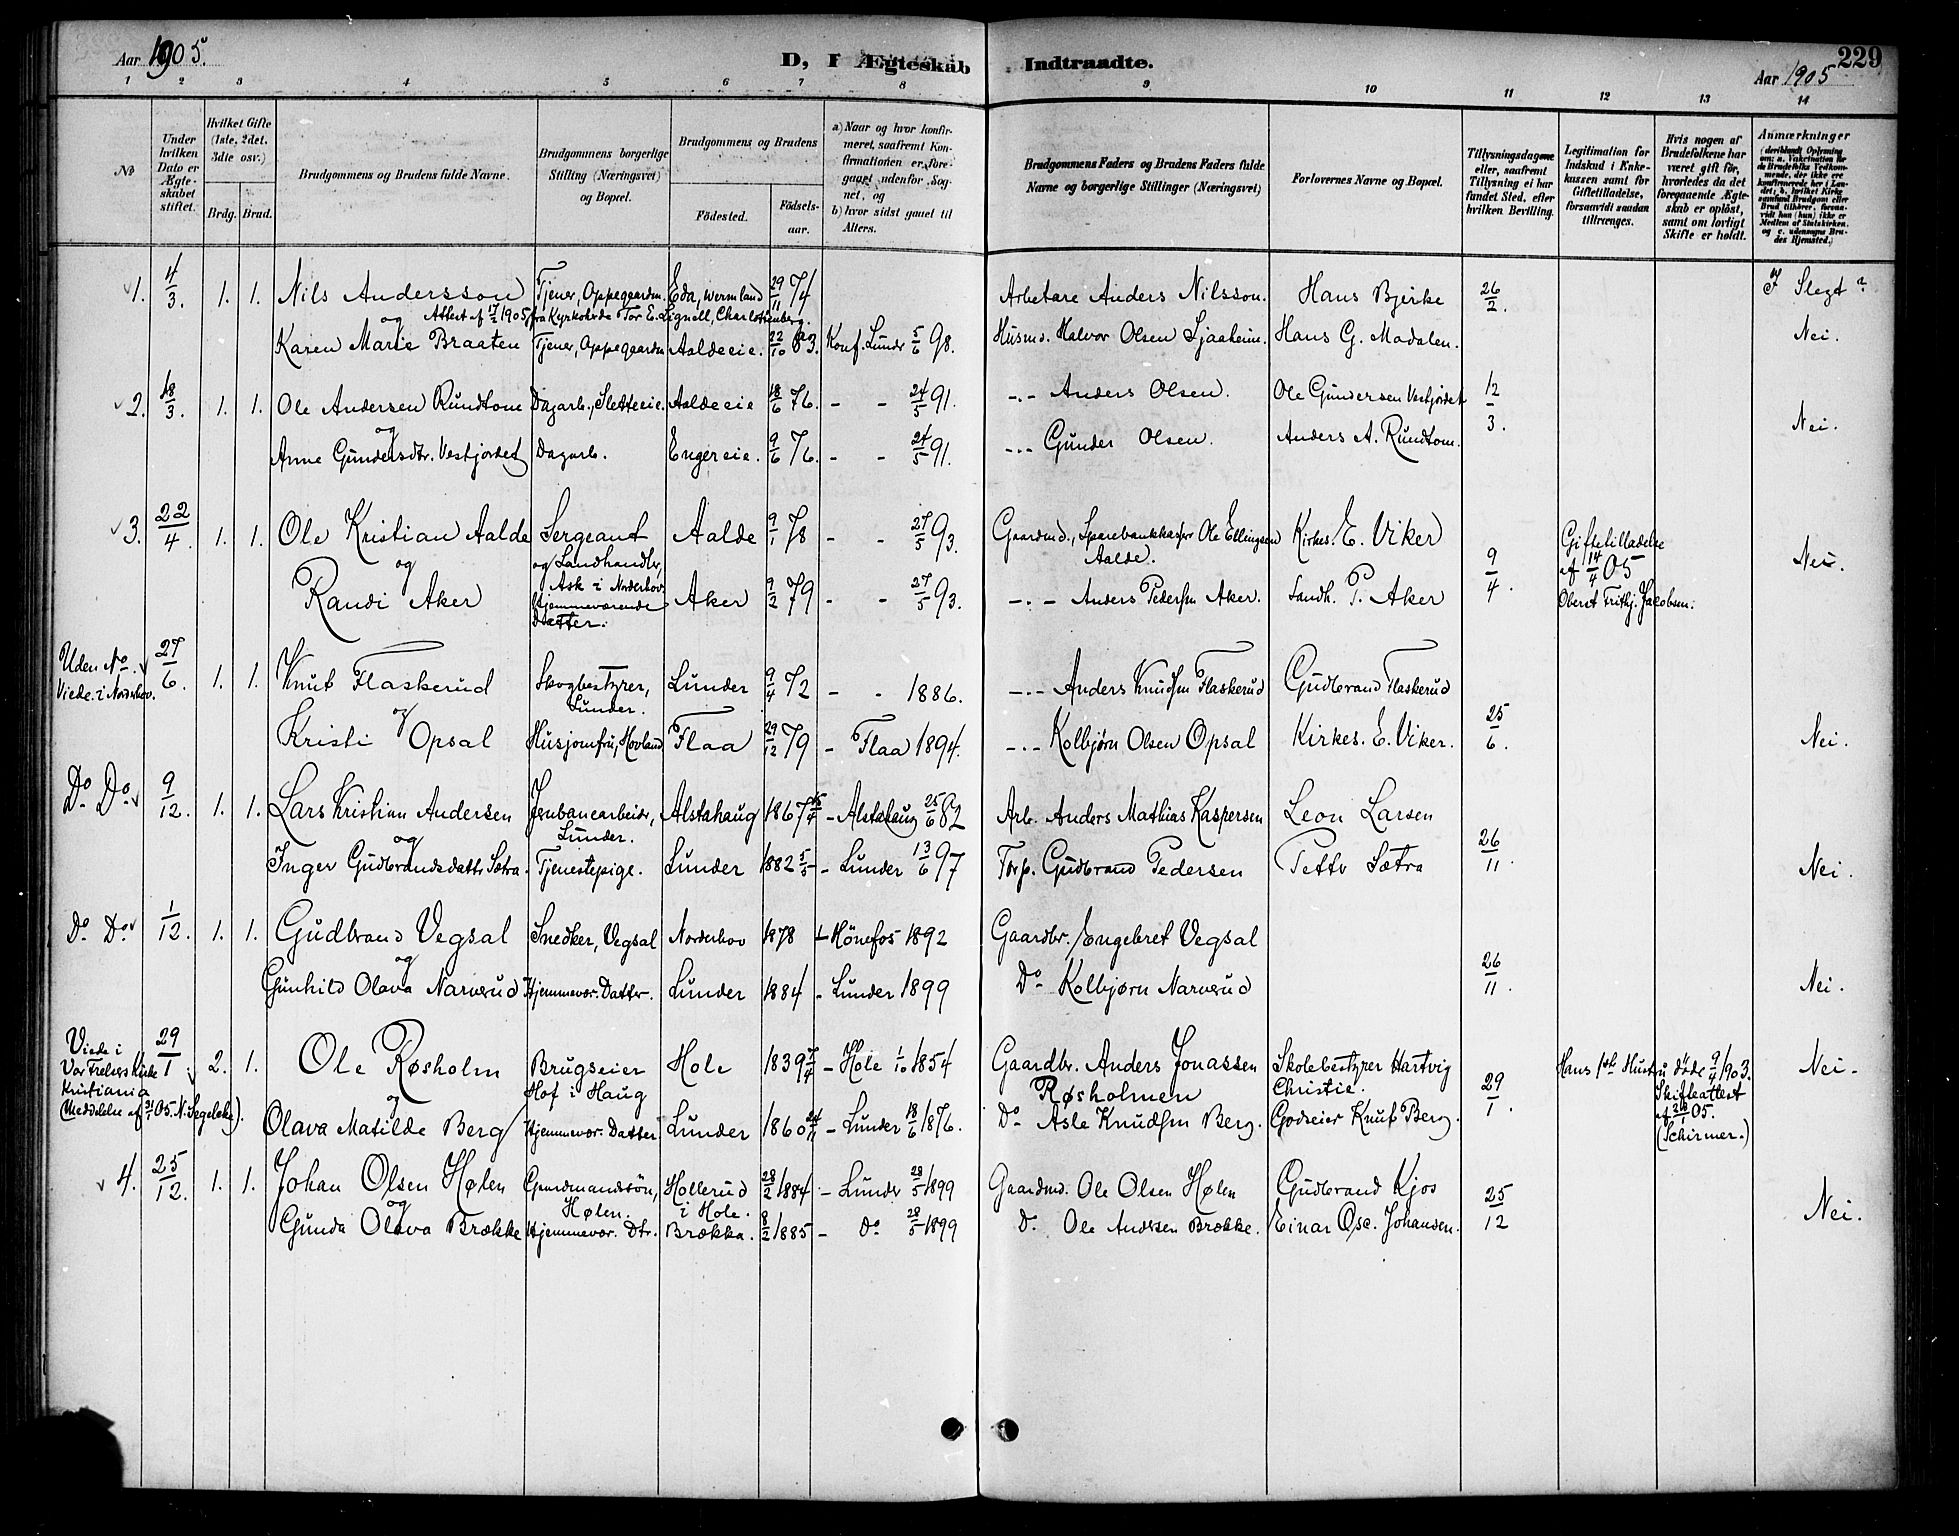 Aar 1905.
D, I Ægteskab Indtraadte.
229
Aar 1905
1 2 3 4 5 6 7 8 9 10 11 12 13 14
No
Under hvilken Dato er Ægteskabet stiftet.
Hvilket Gifte (1ste, 2det, 3die osv.)
Brdg. Brud.
Brudgommens og Brudens fulde Navne.
Brudgommens borgerlige Stilling (Næringsvei) og Bopæl.
Brudgommens og Brudens
Födested.
Födselsaar.
a) Naar og hvor konfirmeret, saafremt Konfirmationen er foregaaet udenfor Sognet, og
b) hvor sidst gaaet til Alters.
Brudgommens Faders og Brudens Faders fulde Navne og borgerlige Stillinger (Næringsvei)
Forlovernes Navne og Bopæl.
Tillysningsdagene eller, saafremt Tillysning ei har fundet Sted, efter hvilken Bevilling.
Legitimation for Indskud i Enkekassen samt for Giftetilladelse, forsaavidt saadan tiltrænges.
Hvis nogen af Brudefolkene har været gift för, hvorledes da det foregaaende Ægteskab er oplöst, samt om lovligt Skifte er holdt.
Anmærkninger (deriblandt Oplysning om: a. Vakcination for de Brudefolks Vedkommende, der ikke ere konfirmerede her i Landet; b. hvilket Kirkesamfund Brudgom eller Brud tilhörer, forsaavidt han (hun) ikke er Medlem af Statskirken, og c. udensogns Brudes Hjemsted.)
1. 4/3. 1. 1. Nils Andersson Tjener, Oppegaarden. Eda, Wermland 29/11 74 Arbetare Anders Nilsson. Hans Bjerke 26/2. I Slegt?
og Attest af 17/2 1905 fra Kyrkoherde Tor E. Lignell, Charlottenberg.
Karen Marie Braaten Tjener, Oppegaarden Aaldeeie. 22/10 83. Konf. Lunder 5/6 98. Husmd. Halvor Olsen Sjaaheim. Hans G. Modalen. Nei.
2. 18/3. 1. 1. Ole Andersen Rundtom Dagarb., Sletteeie. Aaldeeie 18/6 76. - - 24/5 91. -.- Anders Olsen. Ole Gundersen Vestjordet 12/3.
og
Anne Gundersdtr. Vestjordet Dagarb. Engereie. 9/6 76. - - 24/5 91. -.- Gunder Olsen. Anders A. Rundtom. Nei.
3. 22/4. 1. 1. Ole Kristian Aalde Sergeant og Landhandler, Ask i Norderhov Aalde 9/1 78 - - 27/5 93. Gaardmd., Sparebankkasser Ole Ellingsen Aalde. Kirkes. E. Viker 9/4. Giftetilladelse af 14/4 05 Oberst Frithj. Jacobsen. Nei.
og
Randi Aker Hjemmeværende Datter. Aker 9/2 79 - - 27/5 93. -.- Anders Pedersen Aker. Landh. P. Aker
Uden No. Viede i Norderhov. 27/6. 1. 1. Knut Flaskerud Skogbestyrer, Lunder. Lunder 9/4 72 - - 1886. -.- Anders Knudsen Flaskerud Gudbrand Flaskerud
og
Kristi Opsal Husjomfru, Hovland Flaa 29/12 79 - Flaa 1894. -.- Kolbjørn Olsen Opsal Kirkes. E. Viker. 25/6. Nei.
Do. Do. 9/12. 1. 1. Lars Kristian Andersen Jernbanearbeider, Lunder. Alstahaug 1867 - Alstahaug 25/6 82 Arb. Anders Mathias Kaspersen Leon Larsen
og
Inger Gudbrandsdatter Sætra. Tjenestepige. Lunder 1882 5/5 - Lunder 13/6 97 Torp. Gudbrand Pedersen Petter Sætra 26/11. Nei.
Do. Do. 1/12. 1. 1. Gudbrand Vegsal Snedker, Vegsal Norderhov 1878 - Hønefos 1892 Gaardbr. Engebret Vegsal
og
Gunhild Olava Narverud Hjemmevær. Datter. Lunder 1884 - Lunder 1899 Do. Kolbjørn Narverud 26/11. Nei.
Viede i Vor Frelsers Kirke Kristiania (Meddelelse af 31/1 05. N. Segelcke). 29/1 2. 1. Ole Røsholm Brugseier Hof i Haug Hole 1839 7/4 - Hole 1/10 1854 Gaardbr. Anders Jonassen Røsholmen Skolebestyrer Hartvig Christie. 29/1. Hans 1ste Hustru døde 9/4 1903. Skifteattest af 26/1 05. (Schirmer.) Nei.
og
Olava Matilde Berg Hjemmevær. Datter Lunder 1860 24/11 - Lunder 18/6 1876. Do. Asle Knudsen Berg. Godseier Knut Berg.
4. 25/12. 1. 1. Johan Olsen Hølen Gaardmandssøn, Hølen. Hollerud i Hole. 28/2 1884 - Lunder 28/5 1899 Gaardmd. Ole Olsen Hølen Gudbrand Kjos 25/12
og
Gunda Olava Brække Hjemmevær. Dtr. Brækka. 8/2 1885 - Do 28/5 1899 D. Ole Andersen Brække. Einar Osc. Johansen. Nei.